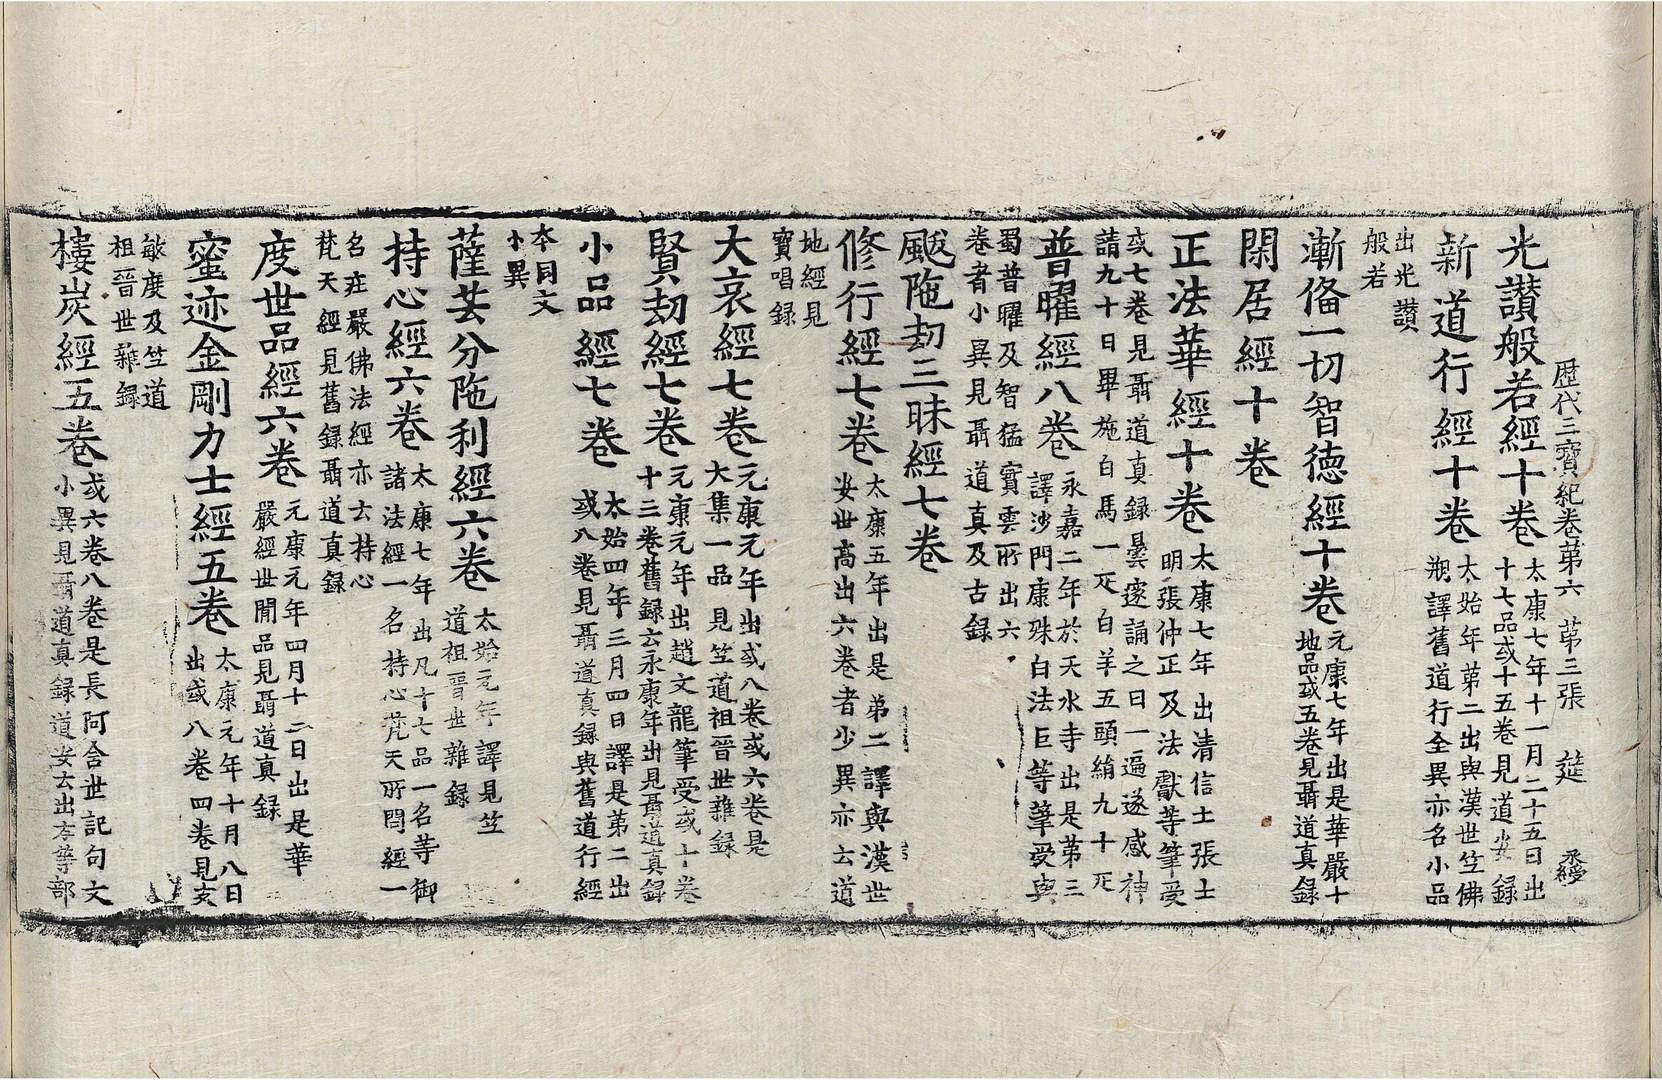 歷代三寶紀卷第六 第三張 筵
光讃般若經十卷太康七年十一月二十五日出
十七品或十五卷見道安録
新道行經十卷太始年第二出與漢世竺佛
朔譯舊道行全異亦名小品
出光讃
般若
漸俻一切智德經十卷元康七年出是華嚴十
地品或五卷見聶道真録
閑居經十卷
正法華經十卷太康七年出清信士張士
明張仲正及法獻等筆受
或七卷見聶道真録曇邃誦之日一遍遂感神
請九十日畢施白馬一疋白羊五頭絹九十疋
普曜經八卷永嘉二年於天水寺出是第三
譯沙門康殊白法巨等筆受與
蜀普曜及智猛寶雲所出六
卷者小異見聶道真及古録
颰陁劫三昧經七卷
修行經七卷太康五年出是弟二譯與漢世
安世高出六卷者少異亦云道
地經見
寶唱録
大哀經七卷元康元年出或八卷或六卷是
大集一品見竺道祖晉世雜録
賢劫經七卷元康元年出趙文龍筆受或十卷
十三卷舊録云永康年出見聶道真録
小品經七卷太始四年三月四日譯是第二出
或八卷見聶道真録與舊道行經
本同文
小異
薩芸分陁利經六卷太始元年譯見竺
道祖晉世雜録
持心經六卷太康七年出凡十七品一名等御
諸法經一名持心梵天所問經一
名庄嚴佛法經亦云持心
梵天經見舊録聶道真録
度世品經六卷元康元年四月十二日出是華
嚴經世閒品見聶道真録
蜜迹金剛力士經五卷太康元年十月八日
出或八卷四卷見支
敏度及竺道
祖晉世雜録
樓炭經五卷或六卷八卷是長阿含世記句文
小異見聶道真録道安云出方等部